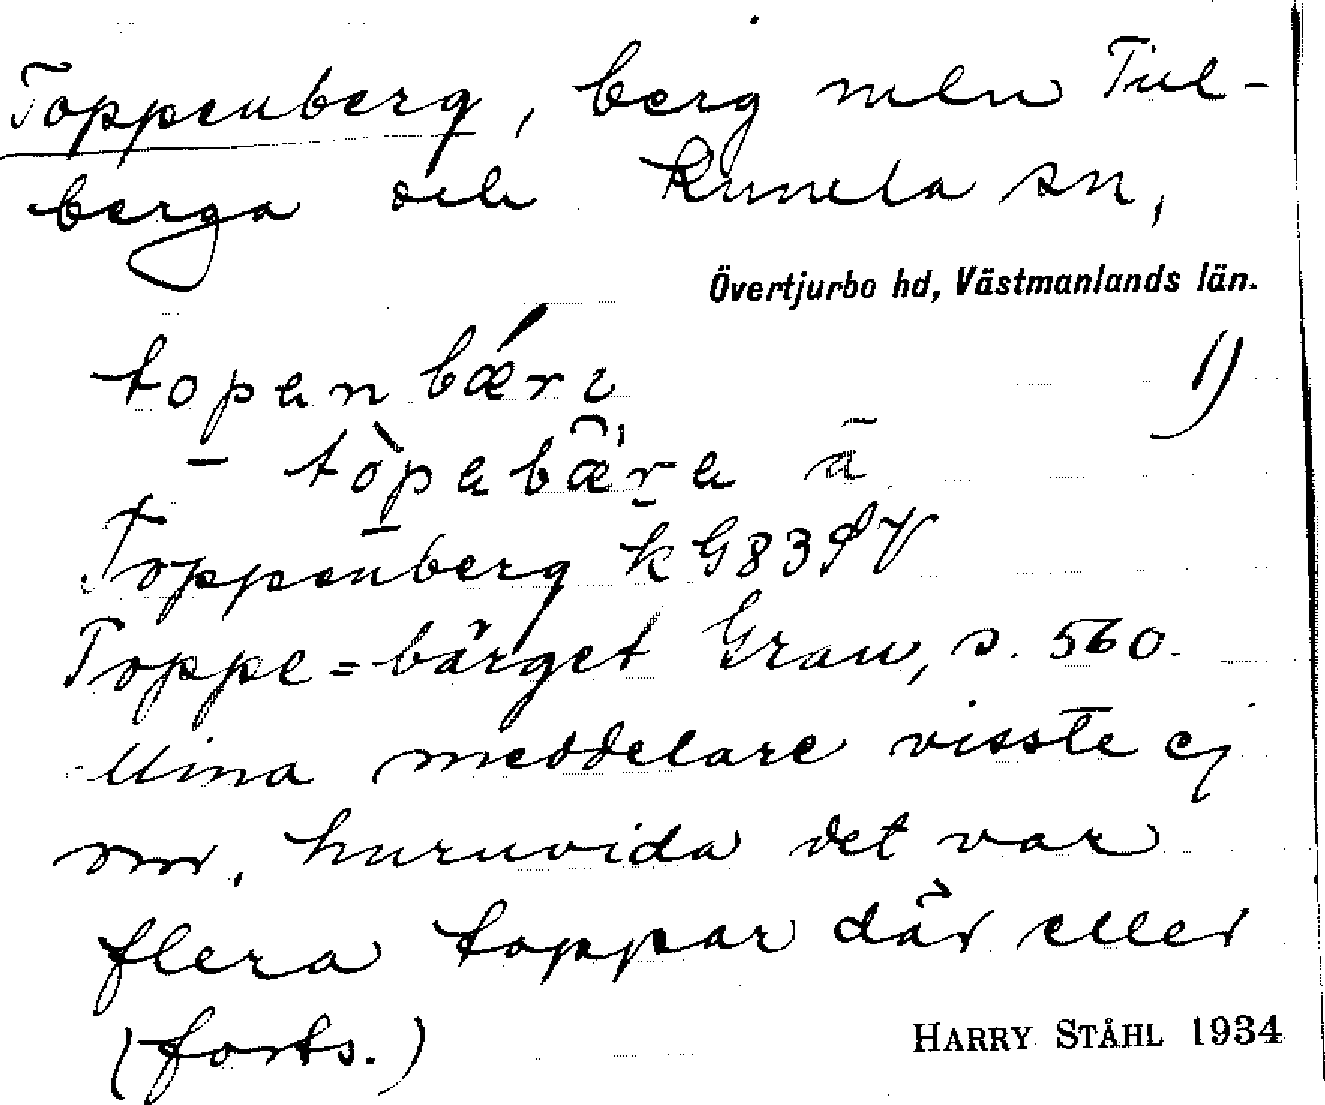 Toppenberg, berg mln Tul-
berga och Kumla sn,
Övertjurbo hd, Västmanlands län.
topɐnbǽrɩ 1)
– tòpɐbæ̂rɐ ā
Toppenberg k G83 SV
Toppe=bärget Grau, s. 560.
Mina meddelare visste ej
om, huruvida det var
flera toppar där eller
(forts.)
HARRY STÅHL 1934